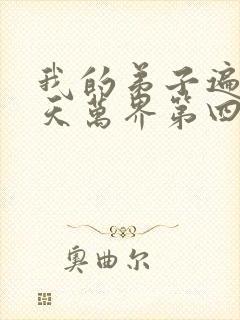 我的弟子遍
天万界第四
奥曲尔